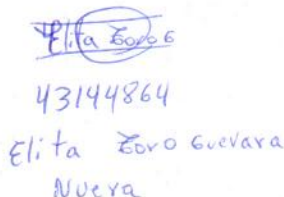 Elita Toro G
43144864
Elita Toro Guevara
Nueva